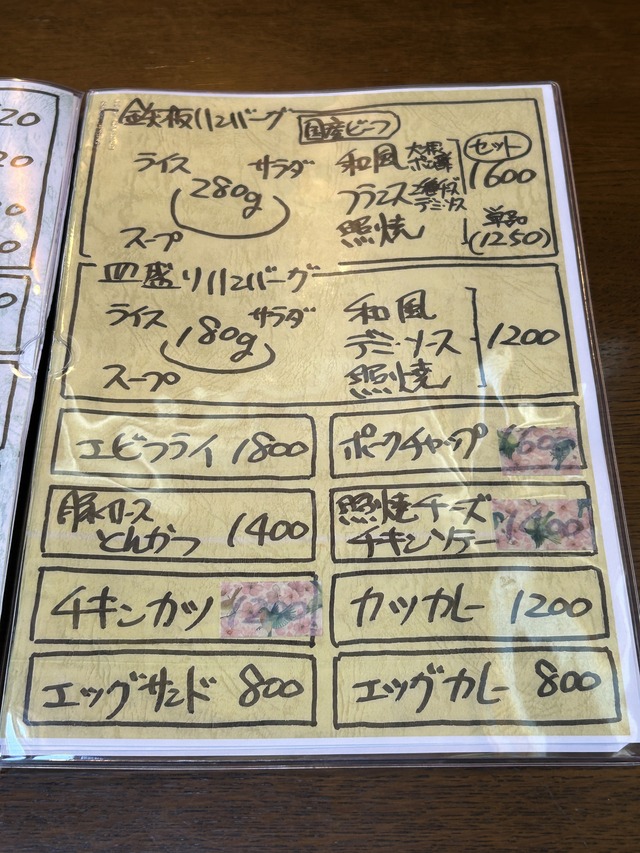 20
20
0
0
鉄板ハンバーグ 国産ビーフ
ライス サラダ 和風 大根 セット
280g フランス デミソース 1600
スープ 照焼 単品 (1250)
皿盛りハンバーグ
ライス サラダ 和風
180g デミソース 1200
スープ 照焼
エビフライ 1800
ポークチャップ 1600
豚ロース
とんかつ 1400
照焼チーズ
チキンソテー 1400
チキンカツ 1200
カツカレー 1200
エッグサンド 800
エッグカレー 800